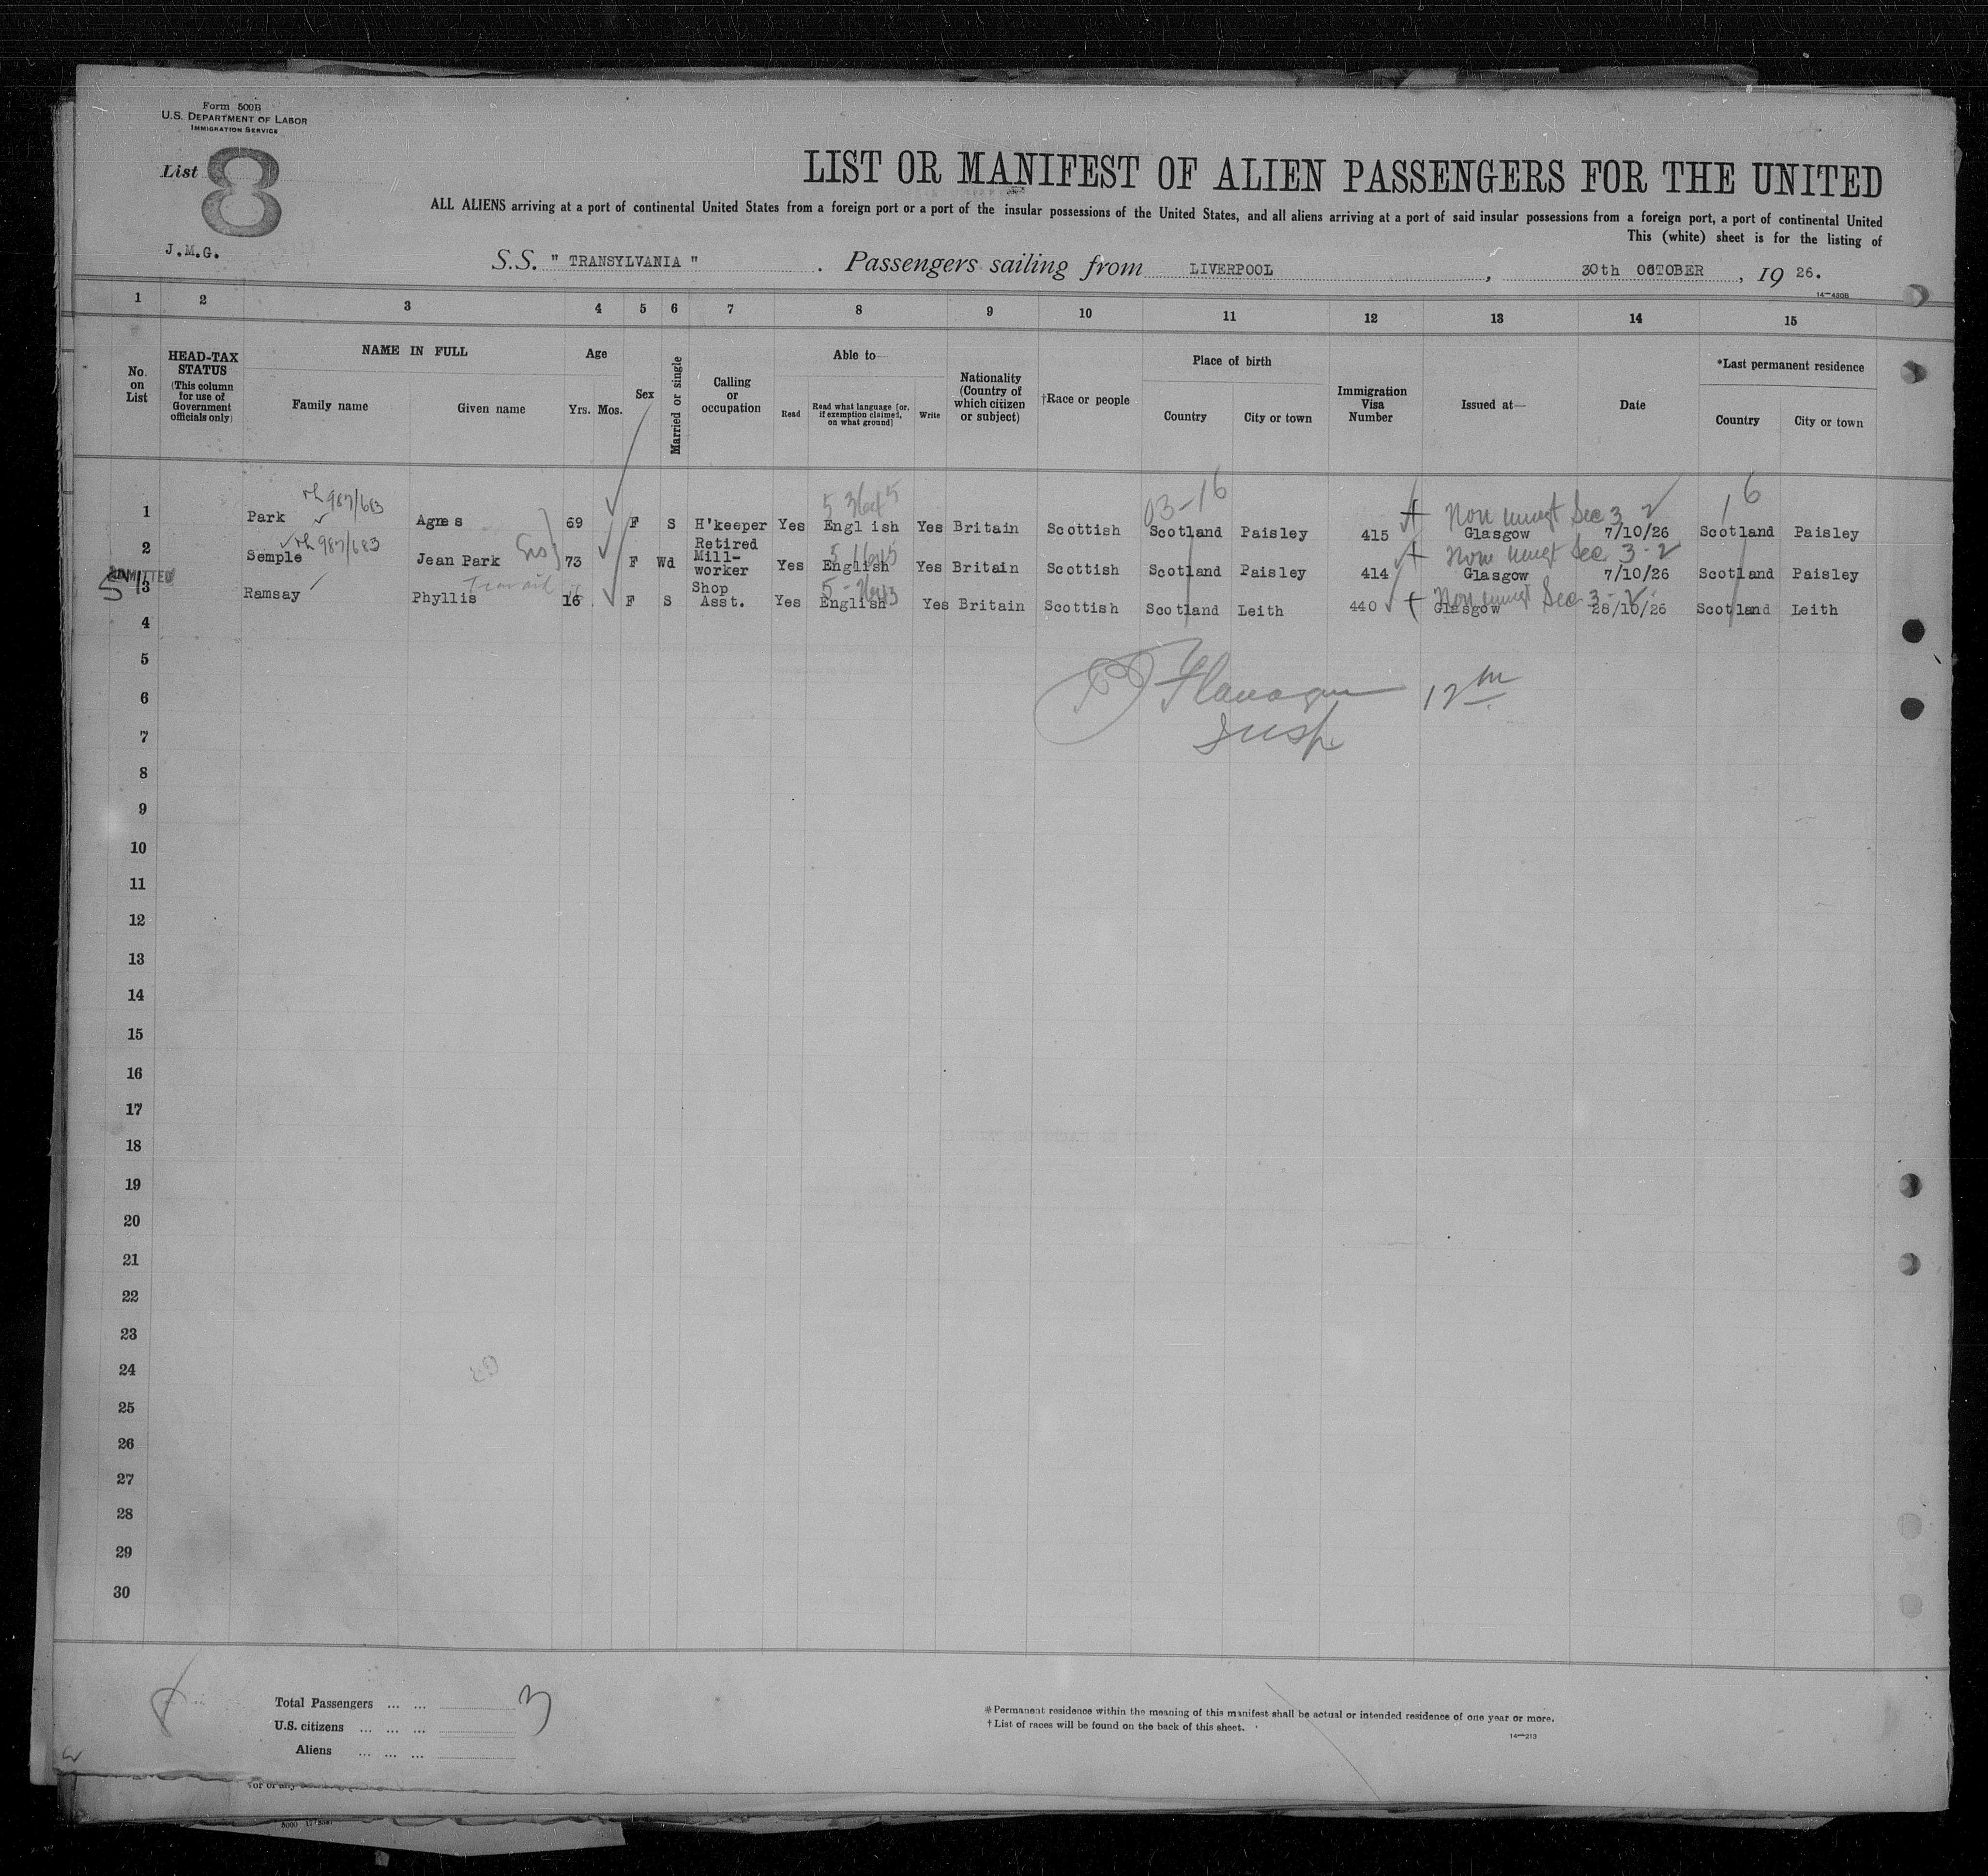 Form 500B
U.S. DEPARTMENT OF LABOR
IMMIGRATION SERVICE
List 8
J.M.G.
LIST OR MANIFEST OF ALIEN PASSENGERS FOR THE UNITED
ALL ALIENS arriving at a port of continental United States from a foreign port or a port of the insular possessions of the United States, and all aliens arriving at a port of said insular possessions from a foreign port, a port of continental United
This (white) sheet is for the listing of
S.S. " TRANSYLVANIA " . Passengers sailing from LIVERPOOL , 30th OCTOBER , 19 26.
14—430B
1 2 3 4 5 6 7 8 9 10 11 12 13 14 15
No. on List
HEAD-TAX STATUS (This column for use of Government officials only)
NAME IN FULL
Family name Given name
Age
Yrs. Mos.
Sex
Married or single
Calling or occupation
Able to—
Read
Read what language [or, if exemption claimed, on what ground]
Write
Nationality (Country of which citizen or subject)
†Race or people
Place of birth
Country City or town
Immigration Visa Number
Issued at—
Date
*Last permanent residence
Country City or town
987/683 03-16 Non immgt Sec 3-2 16
1 Park Agnes 69 F S H'keeper Yes English Yes Britain Scottish Scotland Paisley 415 Glasgow 7/10/26 Scotland Paisley
987/683 Non immgt Sec 3-2
2 Semple Jean Park 73 F Wd Retired Mill-worker Yes English Yes Britain Scottish Scotland Paisley 414 Glasgow 7/10/26 Scotland Paisley
ADMITTED Non immgt Sec 3-2
3 Ramsay Phyllis 16 F S Shop Asst. Yes English Yes Britain Scottish Scotland Leith 440 Glasgow 28/10/26 Scotland Leith
4
5
6 Flanagan 12th
7 Insp.
8
9
10
11
12
13
14
15
16
17
18
19
20
21
22
23
24
25
26
27
28
29
30
Total Passengers ... ... 3
U.S. citizens ... ... ...
Aliens ... ... ...
* Permanent residence within the meaning of this manifest shall be actual or intended residence of one year or more.
† List of races will be found on the back of this sheet.
14—213